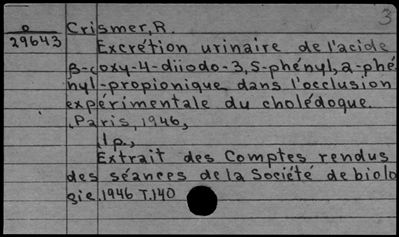 3
o Crismer, R.
29643 Excrétion urinaire de l'acide
β-(oxy-4-diiodo-3,5-phényl,2-phé
nyl-propionique dans l'occlusion
expérimentale du cholédoque.
Paris, 1946,
1p.,
Extrait des Comptes rendus
des séances de la Société de biolo
gie. 1946 T.140